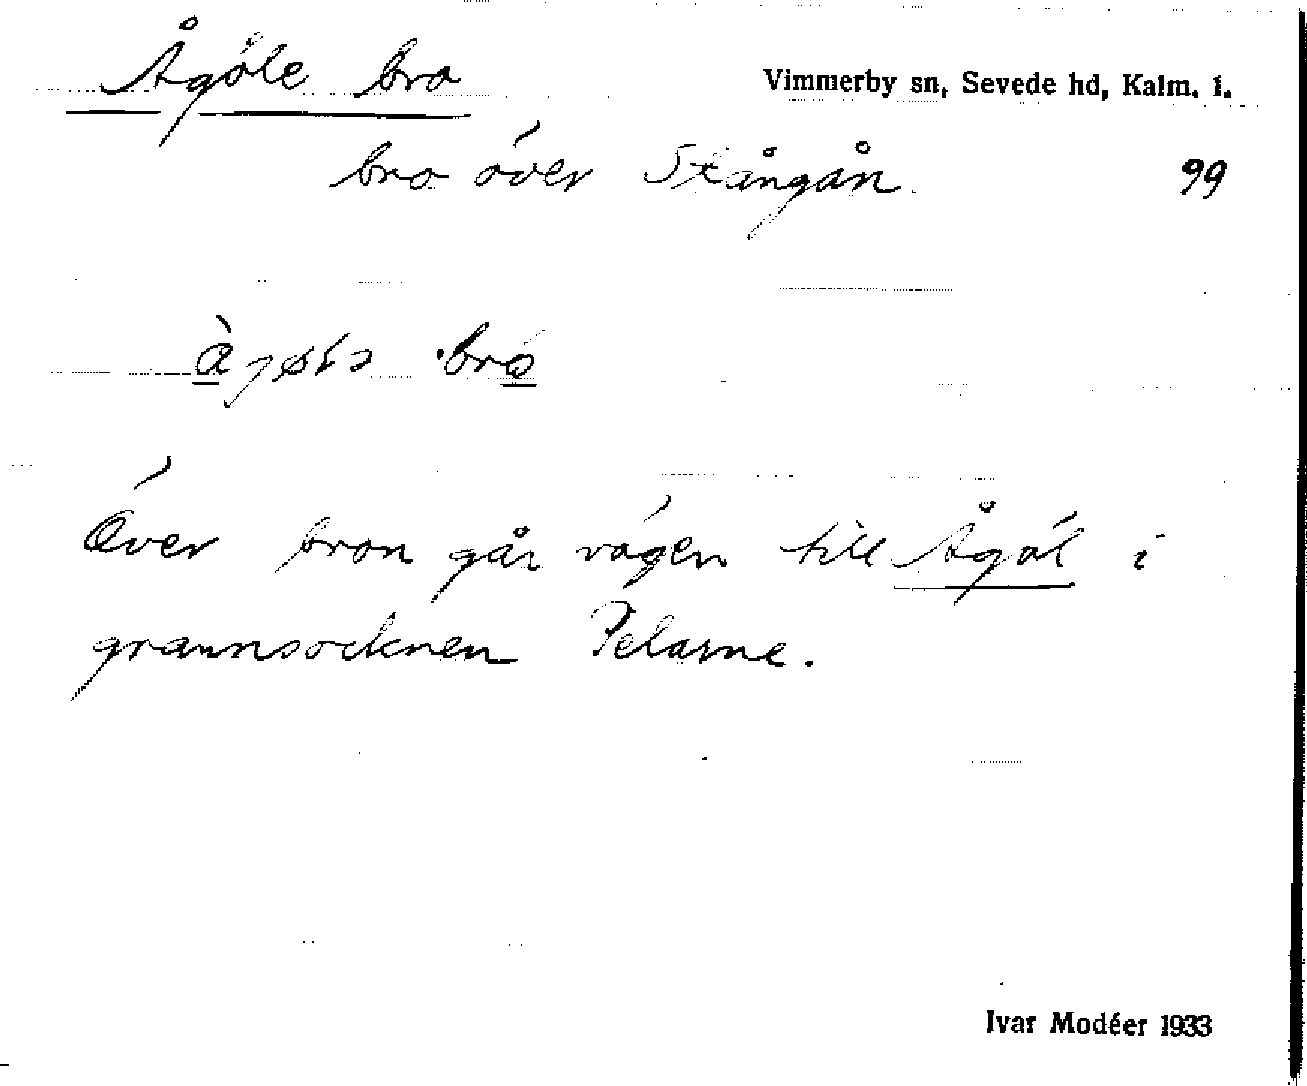 Ågöle bro
Vimmerby sn, Sevede hd, Kalm. l.
bro över Stångån.
99
Över bron går vägen till Ågöl i
grannsocknen Pelarne.
Ivar Modéer 1933